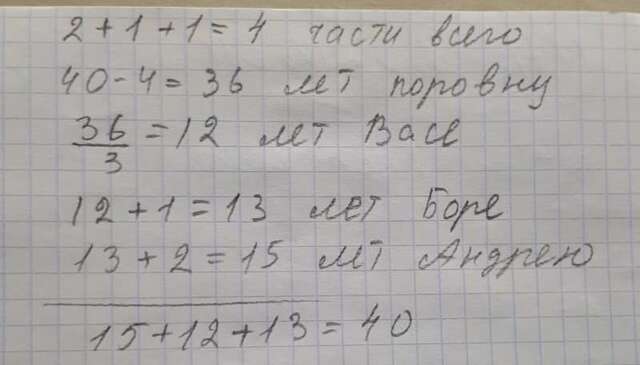 2 + 1 + 1 = 4 части всего
40 - 4 = 36 лет поровну
36/3 = 12 лет Васе
12 + 1 = 13 лет Боре
13 + 2 = 15 лет Андрею
15 + 12 + 13 = 40